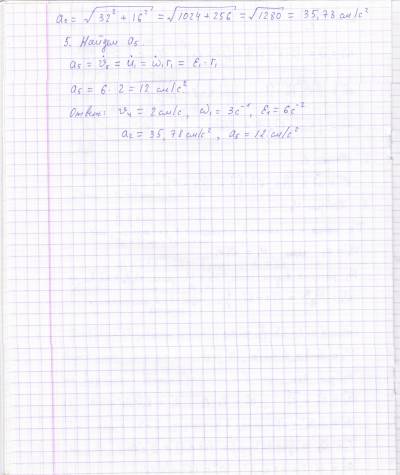 a₂ = √(32² + 16²) = √(1024 + 256) = √1280 = 35,78 см/с²
5. Найдем a₅.
a₅ = v̇₅ = v̇₁ = ω̇₁r₁ = ε₁ · r₁
a₅ = 6 · 2 = 12 см/с²
Ответ: v₄ = 2 см/с, ω₁ = 3 с⁻¹, ε₁ = 6 с⁻²
a₂ = 35,78 см/с², a₅ = 12 см/с²